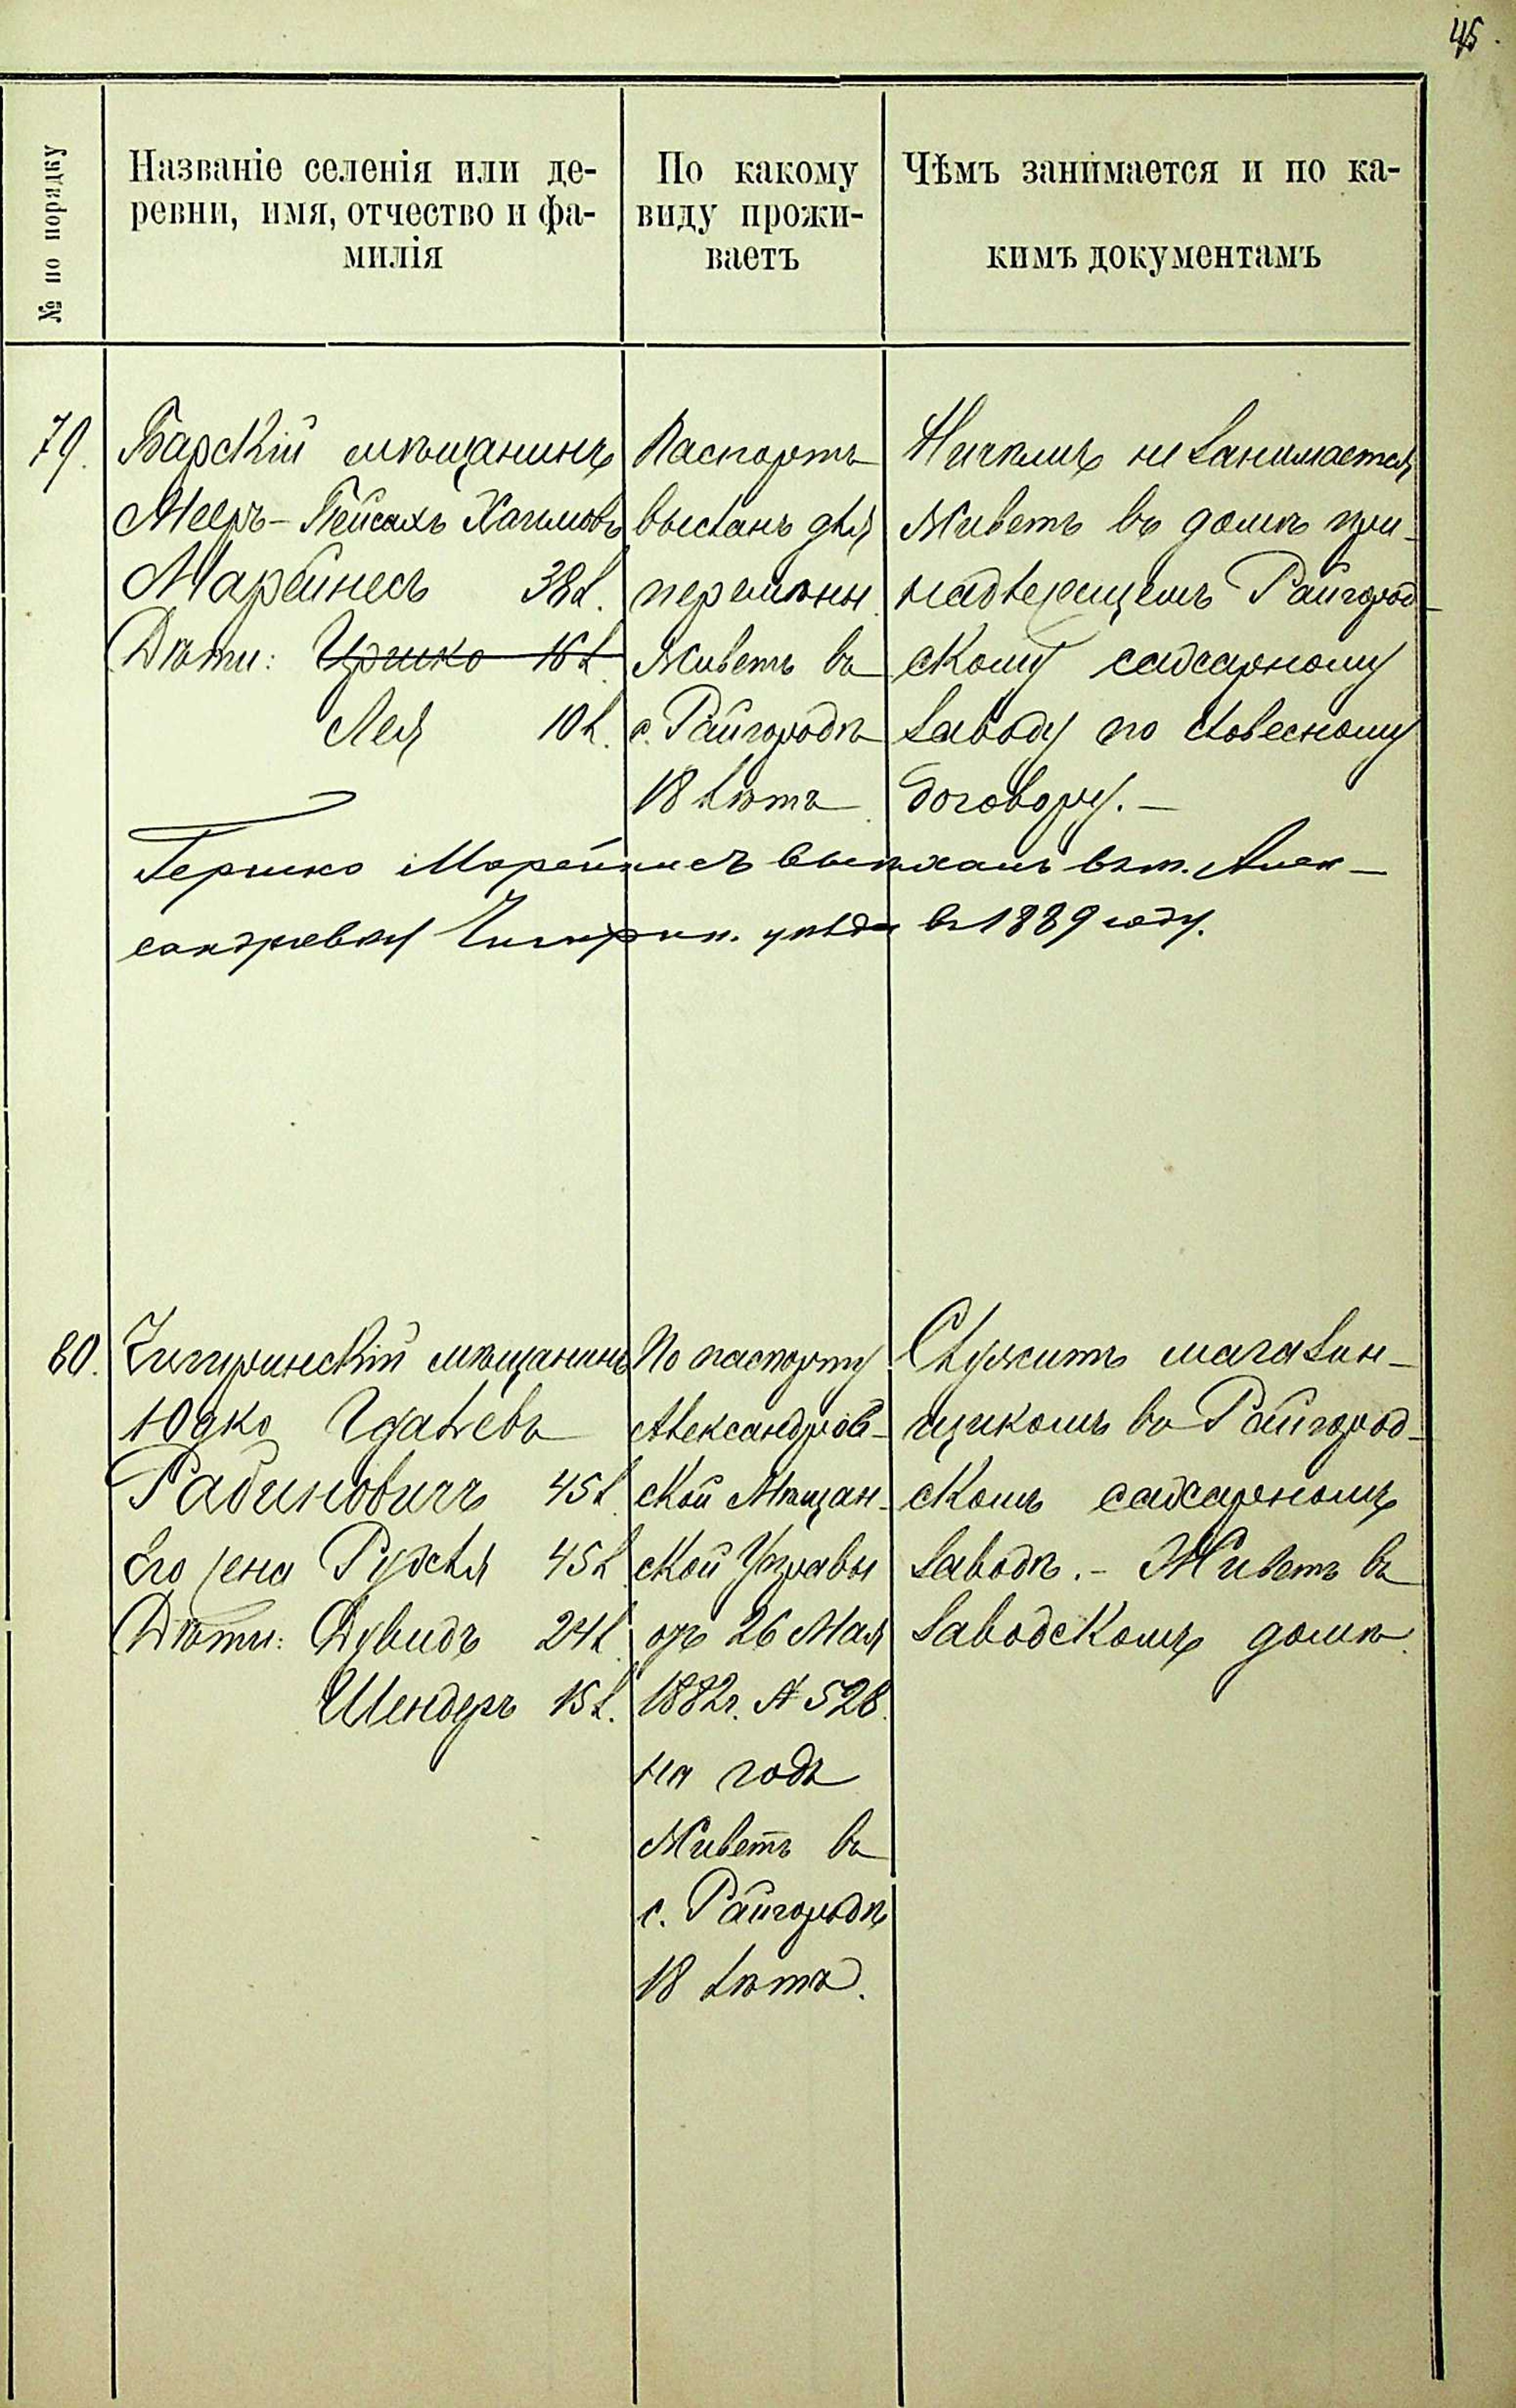 45.
№ по порядку
Названіе селенія или де-
ревни, имя, отчество и фа-
милія
По какому
виду прожи-
ваетъ
Чѣмъ занимается и по ка-
кимъ документамъ
79.
Барскій мѣщанинъ
Мееръ-Пейсахъ Хаимовъ
Марейнесъ 38 л.
Дѣти: Гершко 16 л.
Лея 10 л.
Паспортъ
высланъ для
перемѣны.
Живетъ въ
с. Райгородѣ
18 лѣтъ.
Ничѣмъ не занимается
Живетъ въ домѣ при-
надлежащемъ Райгород-
скому сахарному
заводу по словесному
договору. —
Гершко Марейнисъ выѣхалъ въ м. Алек-
сандровку Чигирин. уѣзда въ 1889 году.
80.
Чигиринскій мѣщанинъ
Юдко Гдалевъ
Рабиновичъ 45 л.
Его жена Рухля 45 л.
Дѣти: Дувидъ 24 л.
Шендеръ 15 л.
По паспорту
Александров-
ской Мѣщан-
ской Управы
отъ 26 Мая
1882 г. № 528.
на годъ
Живетъ въ
с. Райгородѣ
18 лѣтъ.
Служитъ магазин-
щикомъ въ Райгород-
скомъ сахарномъ
заводѣ. - Живетъ въ
заводскомъ домѣ.